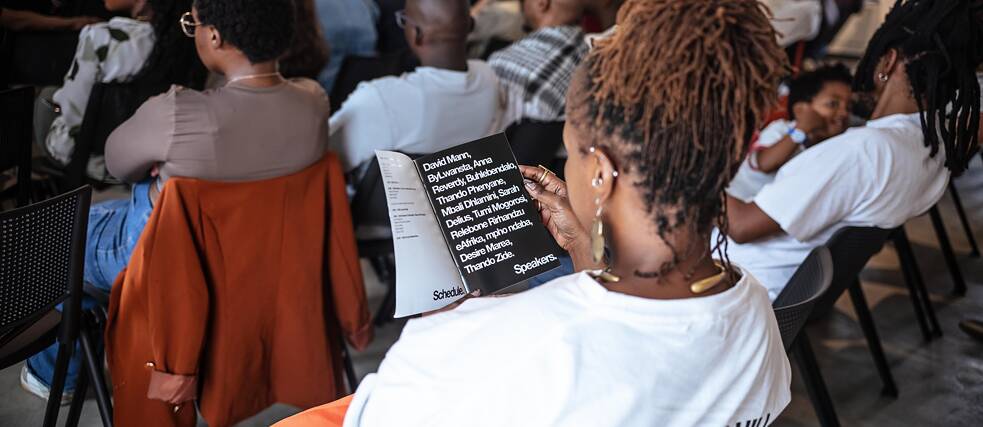 David Mann,
ByLwansta, Anna
Reverdy, Buhlebendalo,
Thando Phenyane,
Mbali Dhlamini, Sarah
Delius, Tumi Mogorosi,
Relebone Rirhandzu
eAfrika, mpho ndaba,
Desire Marea,
Thando Zide.
Speakers.
Schedule.